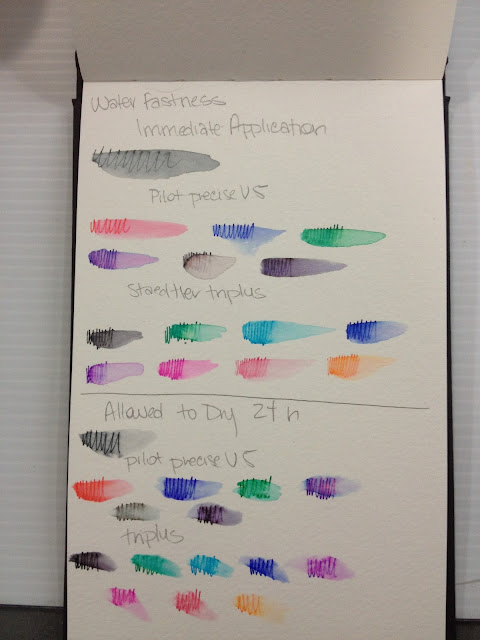 Water Fastness
Immediate Application
Pilot precise V5
Staedtler triplus
Allowed to Dry 24 h
pilot precise V5
triplus